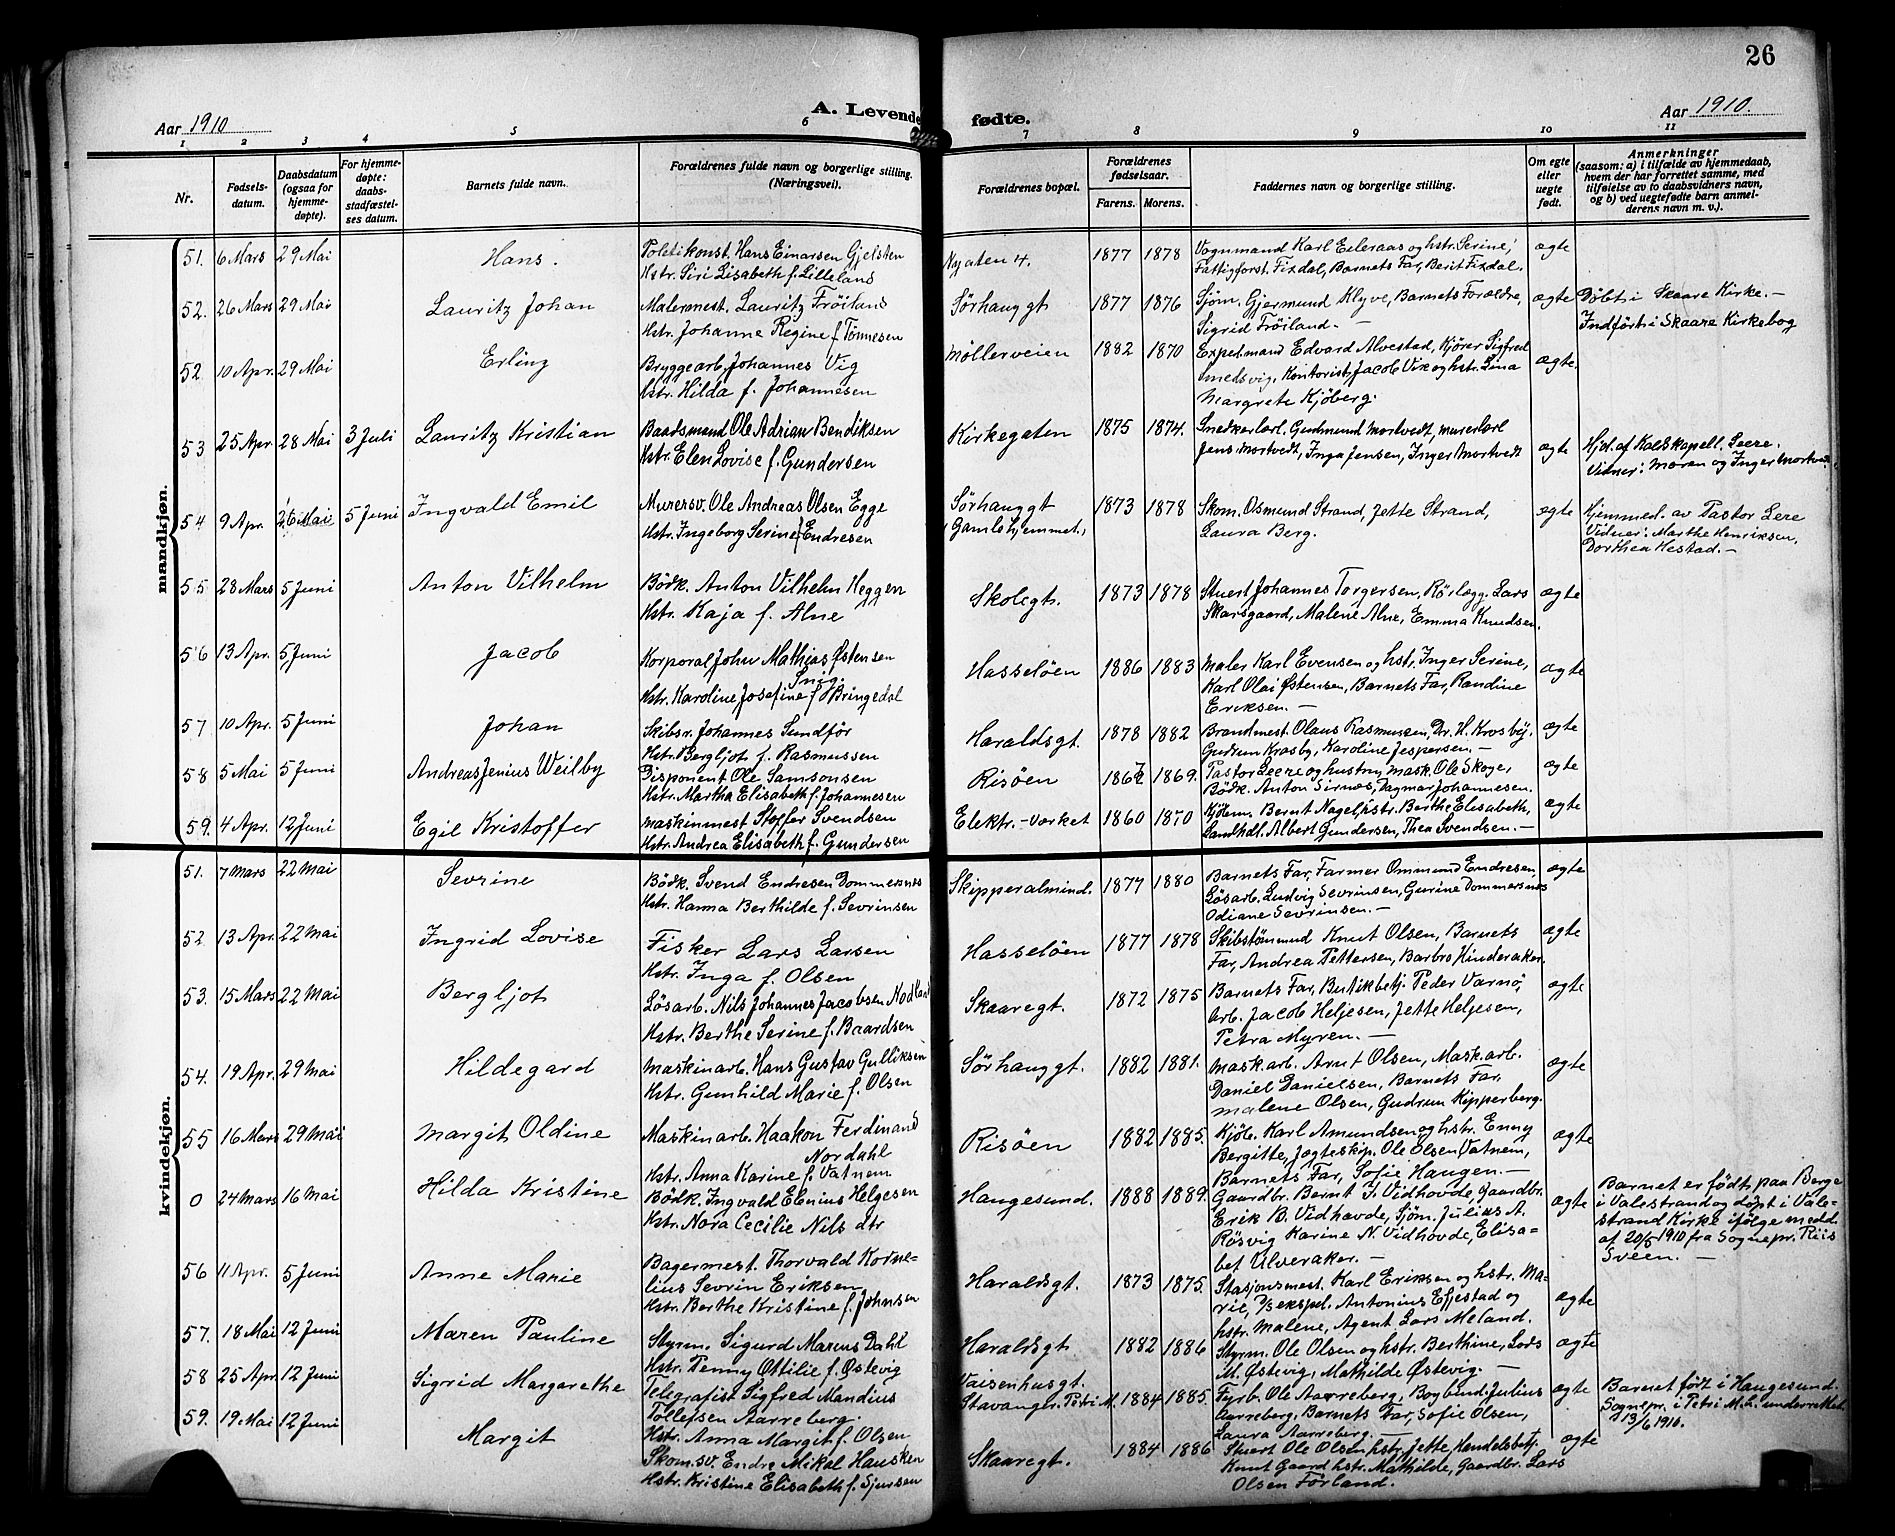 26
Aar 1910
A. Levende fødte.
Aar 1910.
1 2 3 4 5 6 7 8 9 10 11
Nr.
Fødsels-
datum.
Daabsdatum
(ogsaa for
hjemme-
døpte).
For hjemme-
døpte:
daabs-
stadfæstel-
ses datum.
Barnets fulde navn.
Forældrenes fulde navn og borgerlige stilling.
(Næringsvei).
Forældrenes bopæl.
Forældrenes
fødselsaar.
Farens. Morens.
Faddernes navn og borgerlige stilling.
Om egte
eller
uegte
født.
Anmerkninger
(saasom: a) i tilfælde av hjemmedaab,
hvem der har forrettet samme, med
tilføielse av to daabsvidners navn,
og b) ved uegtefødte barn anmel-
derens navn m. v.).
mandkjøn.
51. 6 Mars 29 Mai Hans. Politikonst. Hans Einarsen Gjelsten 1877 1878 Vognmand Karl Eileraas og hstr. Serine, ægte
Hstr. Siri Lisabeth f. Lilleland Fattigforst. Fixdal, Barnets Far, Berit Fixdal.
52. 26 Mars 29 Mai Lauritz Johan Malermest. Lauritz Fröiland Sörhauggt 1877 1876 Sjöm. Gjermund Klyve, Barnets Forældre, ægte Döbt i Skaare Kirke.-
Hstr. Johanne Regine f. Tönnesen Sigrid Fröiland.- Indfört i Skaare Kirkebog
52 10 Apr. 29 Mai Erling Bryggearb. Johannes Vig Möllerveien 1882 1870 Exped.mand Edvard Alvestad, Kjörer Sigfred ægte.
Hstr. Hilda f. Johannesen Smedsvig, Kontorist Jacob Vix og hstr. Lina
Margrete Kjöberg.
53 25 Apr. 28 Mai 3 Juli Lauritz Kristian Baadsmand Ole Adrian Bendiksen Kirkegaten 1875 1874. Snedkerlærl. Gudmund Mortvedt, murerlærl ægte
Hstr. Elen Lovise f. Gundersen Jens Mortvedt, Inga Jensen, Inger Mortvedt Hjd. af Kaldskapell. Leere.
Vidner: Moren og Inger Mortvedt
54 9 Apr. 26 Mai 5 Juni Ingvald Emil Murersv. Ole Andreas Olsen Egge Sörhauggt 1873 1878 Skom. Osmund Strand, Jette Strand, ægte Hjemmed. av Pastor Lere
Hstr. Ingeborg Serine f. Endresen (Gamlehjemmet) Laura Berg. Vidner: Marthe Henriksen,
Dorthea Hestad.-
55 28 Mars 5 Juni Anton Vilhelm Bödk. Anton Vilhelm Heggen Skolegt. 1873 1878 Stuert Johannes Torgersen, Rörlægg. Lars ægte
Hstr. Kaja f. Alne Skarsgaard, Malene Alne, Emma Knudsen.
56 13 Apr. 5 Juni Jacob Korporal John Mathias Østensen Hasselöen 1886 1883 Maler Karl Evensen og hstr. Inger Serine, ægte
Hstr. Karoline Josefine f. Bringedal Karl Olai Østensen, Barnets Far, Randine
Eriksen.-
57 10 Apr. 5 Juni Johan Skibsr. Johannes Sundför Haraldsgt. 1878 1882 Brandmest. Olaus Rasmussen, Dr. H. Krosby, ægte
Hstr. Bergljot f. Rasmussen Gudrun Krosby, Karoline Jespersen.-
58 5 Mai 5 Juni Andreas Jenius Weilby Disponent Ole Samsonsen Risöen 1869. Pastor Leere og hustru, mask. Ole Skoge, ægte
Hstr. Martha Elisabeth f. Johannesen Bödk. Anton Sirnæs, Dagmar Johannesen.
59. 4 Apr. 12 Juni Egil Kristoffer Maskinmest Stoffer Svendsen Elektr.-værket 1860 1870 Kjöbm. Bernt Nagel, hstr. Berthe Elisabeth, ægte
Hstr. Andrea Elisabeth f. Gundersen Landhdl. Albert Gundersen, Thea Svendsen.-
kvindekjøn.
51. 7 Mars 22 Mai Sevrine Bödk. Svend Endresen Dommersnes Skipperalmind. 1877 1880 Barnets Far, Farmer Ommund Endresen, ægte
Hstr. Hanna Berthilde f. Sevrinsen Lösarb. Ludvig Sevrinsen, Gurine Dommersnes
Odiane Sevrinsen.-
52 13 Apr. 22 Mai Ingrid Lovise Fisker Lars Larsen Hasselöen 1877 1878 Skibstömmmd Knut Olsen, Barnets ægte
Hstr. Inga f. Olsen Far, Andrea Pettersen, Barbro Hinderaker.
53. 15 Mars 22 Mai Bergljot Lösarb. Nils Johannes Jacobsen Nodland Skaaregt. 1872 1875 Barnets Far, Butikbetj. Peder Varnö, ægte
Hstr. Berthe Serine f. Baardsen Arb. Jacob Heljesen, Jette Heljesen,
Petra Myren.-
54. 19 Apr. 29 Mai Hildegard Maskinarb. Hans Gustav Gulliksen Sörhauggt. 1882 1881. Mask.arb. Arnt Olsen, Mask.arb. ægte
Hstr. Gunhild Marie f. Olsen Daniel Danielsen, Barnets Far,
Malene Olsen, Gudrun Kipperberg.
55 16 Mars 29 Mai Margit Oldine Maskinarb. Haakon Ferdinand Risöen 1882 1885. Kjöb. Karl Amundsen og hstr. Enny ægte
Nordahl Bergitte, Jagteskip. Ole Olsen Vatnem,
Hstr. Anna Karine f. Vatnem Barnets Far, Sofie Haugen.-
0 24 Mars 16 Mai Hilda Kristine Bödk. Ingvald Elenius Helgesen Haugesund. 1888 1889. Gaardbr. Bernt J. Vidhovde, Gaardbr. ægte Barnet er födt paa Berge
Hstr. Nora Cecilie Nils dtr Erik B. Vidhovde, Sjöm. Julius A. i Valestrand og döpt i Vale-
Rösvig Karine N. Vidhovde, Elisa- strand Kirke ifölge medd.
bet Ulveraker.- af 20/5 1910 fra Sognepr. Riis
Sveen.-
56 11 Apr. 5 Juni Anne Marie Bagermest. Thorvald Korne- Haraldsgt. 1873 1875. Stasjonsmest. Karl Eriksen og hstr. Ma- ægte
lius Sevrin Eriksen rie, D/Sekspd. Antonius Effestad og
Hstr. Berthe Kristine f. Johnsen hstr. Malene, Agent Lars Meland.
57. 18 Mai 12 Juni Maren Pauline Styrm. Sigurd Marcus Dahl Haraldsgt 1882 1886 Styrm. Ole Olsen og hstr. Berthine, Lars ægte
Hstr. Penny Ottilie f. Østevig M. Østevig, Mathilde Østevig.-
58 25 Apr. 12 Juni Sigrid Margarethe Telegrafist Sigfred Mandius Vaisenhusgt. 1884 1885. Fyrb. Ole Aarreberg, Bogbind. Julius ægte Barnet födt i Haugesund.
Tollefsen Aarreberg. Stavanger. Petri M. Aarreberg, Barnets Far, Sofie Olsen, Sognepr. i Petri M. underrettet
Hstr. Anna Margit f. Olsen Laura Aarreberg.- 13/6 1910.
59. 19 Mai 12 Juni Margit Skom.sv. Endre Mikal Hausken Skaaregt. 1884 1886 Stuert Ole Olsen hstr. Jette, Handelsbetj. ægte
Hstr. Kristine Elisabeth f. Sjursen Knut Gaard hstr. Mathilde, Gaardbr. Lars
Olsen Förland.